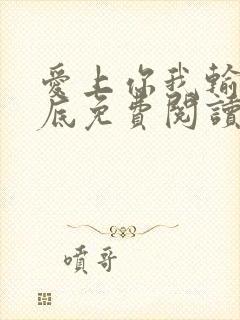 愛上你我輸
底免費閱讀
噴哥